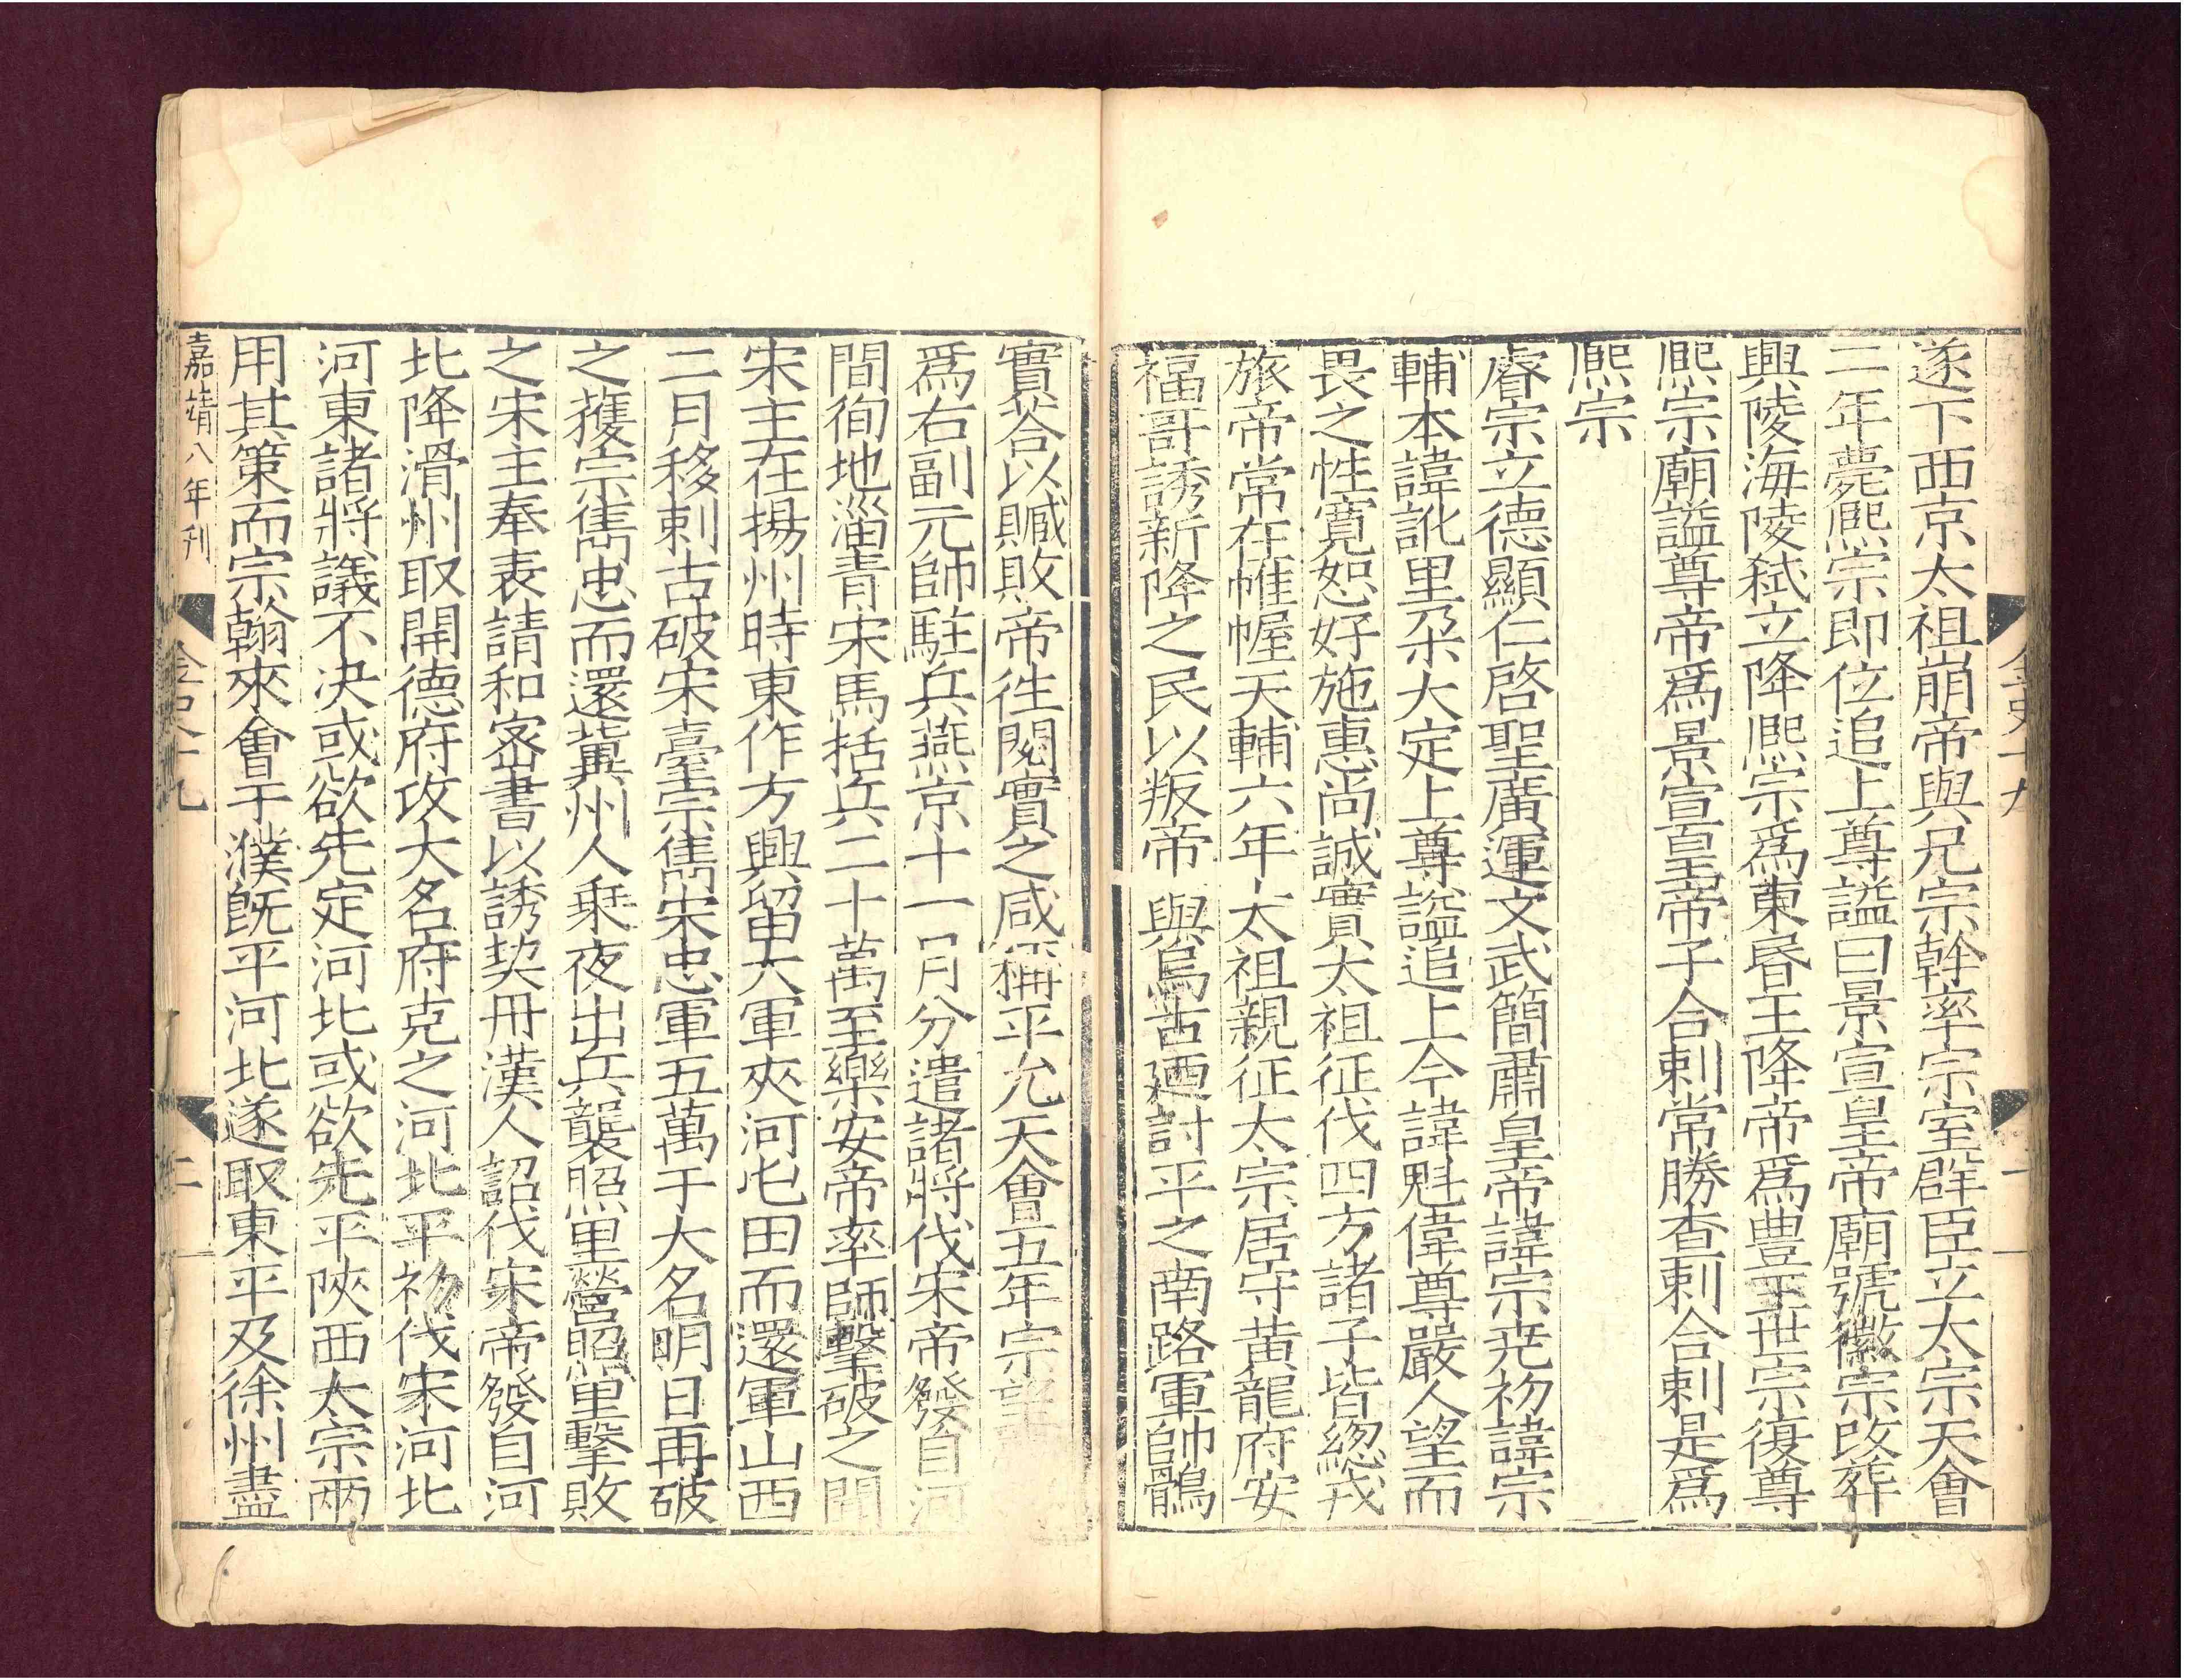 遂下西京太祖崩帝與兄宗幹率宗室群臣立太宗天會
二年薨熈宗即位追上尊謚曰景宣皇帝廟號徽宗改葬
興陵海陵弑立降熈宗爲東昏王降帝爲豊王世宗復尊
熈宗廟謚尊帝爲景宣皇帝子合剌常勝查剌合剌是爲
熈宗
睿宗立德顯仁啓聖廣運文武簡肅皇帝諱宗尭初諱宗
輔本諱訛里朶大定上尊謚追上今諱魁偉尊嚴人望而
畏之性寛恕好施惠尚誠實太祖征伐四方諸子皆緫戎
旅帝常在帷幄天輔六年太祖親征太宗居守黄龍府安
福哥誘新降之民以叛帝與烏古廼討平之南路軍帥鶻
實荅以贓敗帝徃閱實之咸稱平允天會五年宗望
爲右副元帥駐兵燕京十一月分遣諸將伐宋帝發自河
間徇地淄青宋馬括兵二十萬至樂安帝率師擊破之聞
宋主在揚州時東作方興留大軍夾河屯田而還軍山西
二月移剌古破宋臺宗雋宋忠軍五萬于大名明日再破
之獲宗雋忠而還冀州人乗夜出兵襲照里營照里擊敗
之宋主奉表請和宻書以誘契丹漢人詔伐宋帝發自河
北降滑州取開德府攻大名府克之河北平初伐宋河北
河東諸將議不决或欲先定河北或欲先平陜西太宗兩
用其策而宗翰來會于濮既平河北遂取東平及徐州盡
嘉靖八年刋
金史十九
二